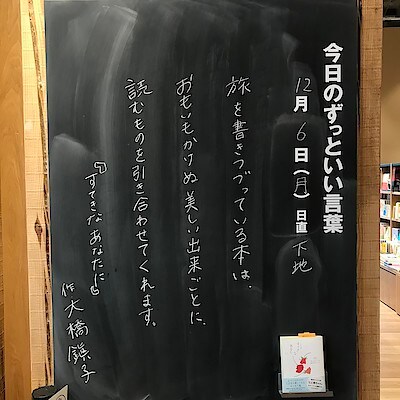 今日のずっといい言葉
12月6日(月)日直 下地
旅を書きつづっている本は、
おもいもかけぬ美しい出来ごとに、
読むものを引き合わせてくれます。
『すてきなあなたに』
作 大橋鎭子